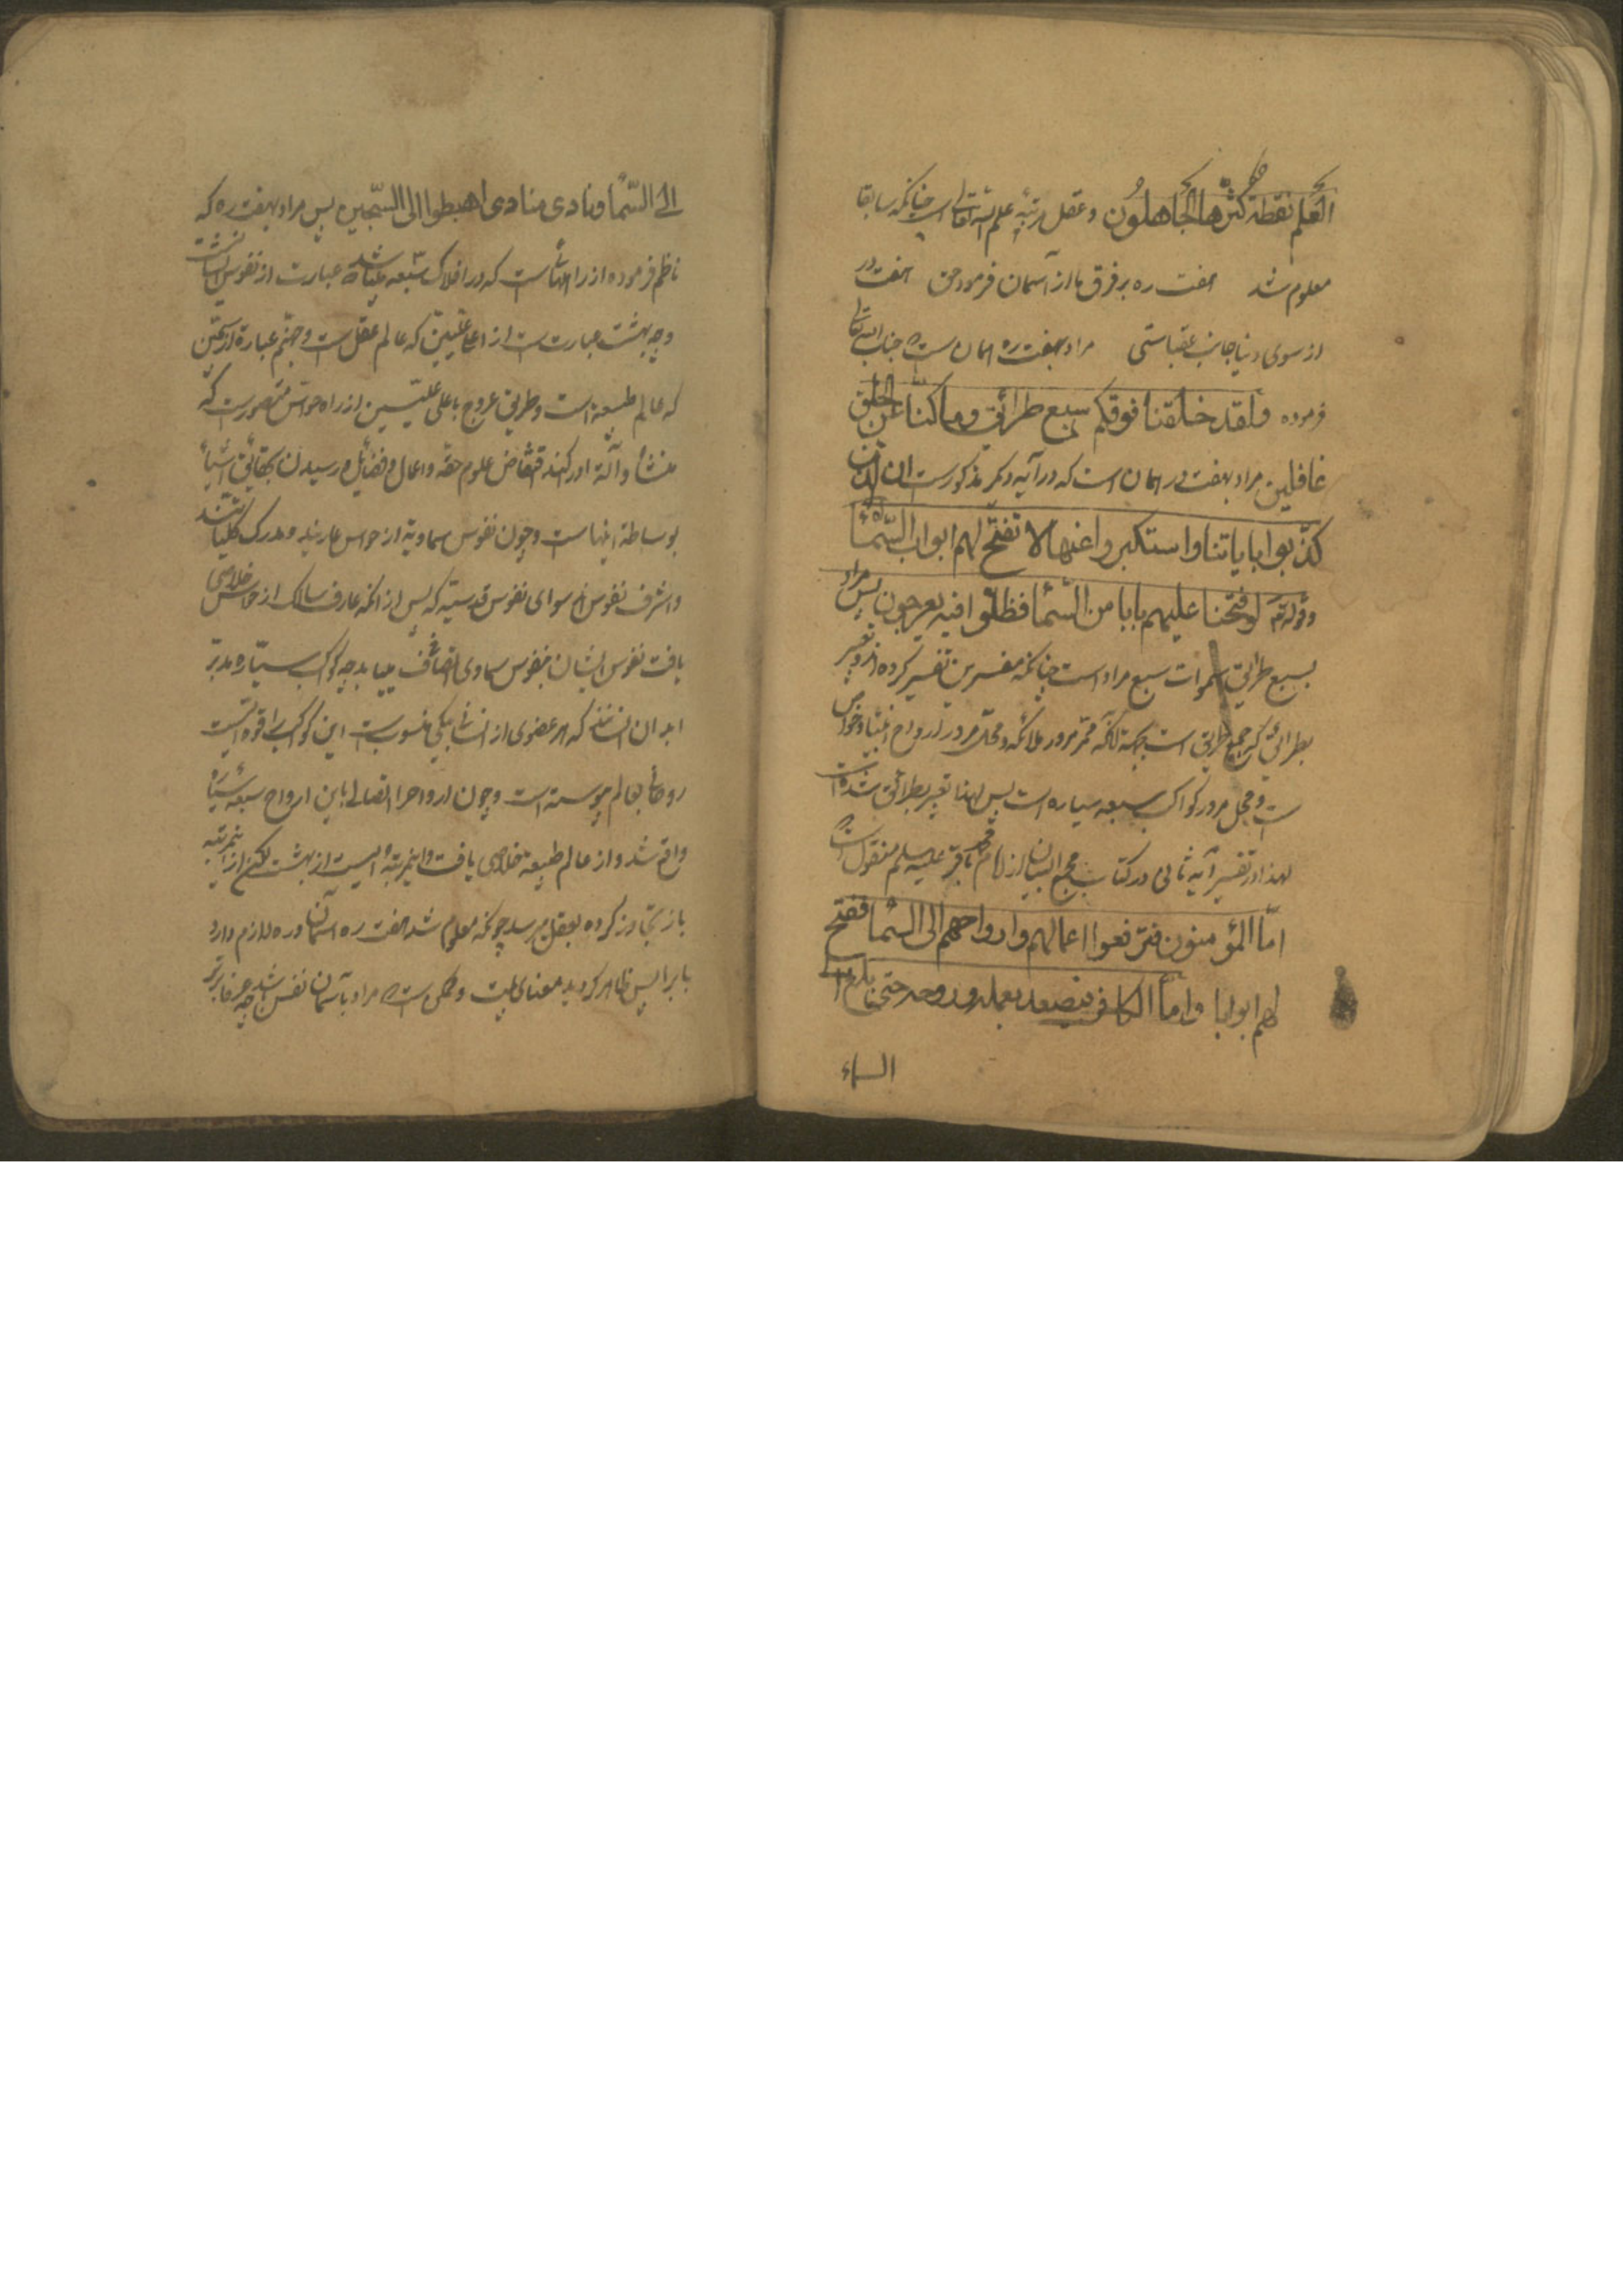 العلم نقطة كثّرها الجاهلون و عقل مرتبهٔ علم الله تعالی است چنانکه سابقا
معلوم شد هفت ره بر فرق ما از آسمان فرمود حق هفت در
از سوی دنیا جانب عقباستی مراد بهفت ره همان است که جناب الله تعالی
فرموده ولقد خلقنا فوقكم سبع طرائق وما كنّا عن الخلق
غافلين مراد بهفت در همان است که در آیه دیگر مذکورست ان الذين
كذّبوا باياتنا واستكبروا عنها لا تفتّح لهم ابواب السّماء
وقوله تع لو فتحنا عليهم بابا من السّماء فظلّوا فيه يعرجون پس مراد
بسبع طرایق سموات سبع مراد است چنانکه مفسرین تفسیر کرده‌اند و تعبیر
بطرائق که جمع طریق است بجهة آنکه ممر مرور ملائکه و محل مرور ارواح انبیا و خواص
است و محل مرور کواکب سبعه سیاره است پس لهذا تعبیر بطرائق شده است
لهذا در تفسیر آیه ثانی در کتاب مجمع البیان از امام محمد باقر علیه سلم منقول است که
امّا المؤمنون فترفعوا اعمالهم وارواحهم الى السّماء ففتح
لهم ابوابها وامّا الكافر فيصعد بعمله وروحه حتى بلغ
السماء
الى السّماء و نادى منادى اهبطوا الى السّجين پس مراد بهفت ره که
ناظم فرموده از راههاست که در افلاک سبعه میباشد که عبارت از نفوس
و چه بهشت عبارت است از اعلا علیّین که عالم عقل است و جهنّم عبارة از سجّین
که عالم طبیعة است و طریق عروج باعلی علیّیین از راه حواس متصورست که
منشأ و آلة اورکند اقتناص علوم حقه و اعمال و فضایل و رسیدن بحقایق اشیاء
بوساطة اینهاست و چون نفوس سماویة از حواس عاریند و مدرک کلیات هستند
و اشرف نفوس سوای نفوس قدسیّه که پس از آنکه عارف سالک از حواس خلاصی
یافت نفوس ایشان بنفوس سماوی اتصاف مییابد چه کواکب سیّاره مدبّر
ابدان انسانند که هر عضوی از انسانی بیکی منسوبست این کواکب را قوة ایست
روحانی بعالم پیوسته است و چون ارواح را اتصالی باین ارواح سبعه سیّاره
واقع شد و از عالم طبیعة خلاصی یافت و این مرتبهٔ ایست از بهشت لیکن از این مرتبه
باز تجاوز کرده بعقل میرسد چونکه معلوم شد هفت ره آسمان و ره لازم دارد
بابرا پس ظاهر گردید معنای بیت و ممکن است که مراد بآسمان نفس باشد چه عرفا بر